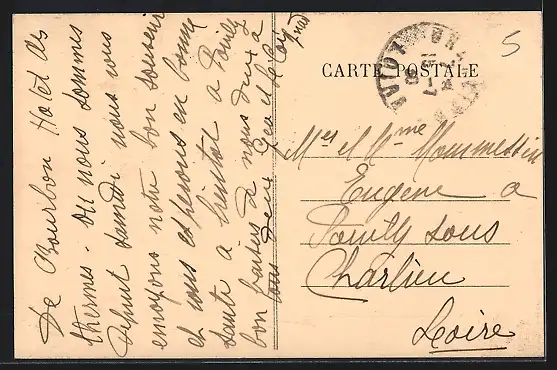 De Bourbon Hotel des
thermes. ou nous sommes
Depuis samedi nous vous
envoyons notre bon souvenir
et vous esperons en bonne
santé a bientot a Pouilly
bon baisers de nous deux a
tous deux
CARTE POSTALE
5
Mr et Mme Mommessin
Eugene a
Pouilly sous
Charlieu
Loire